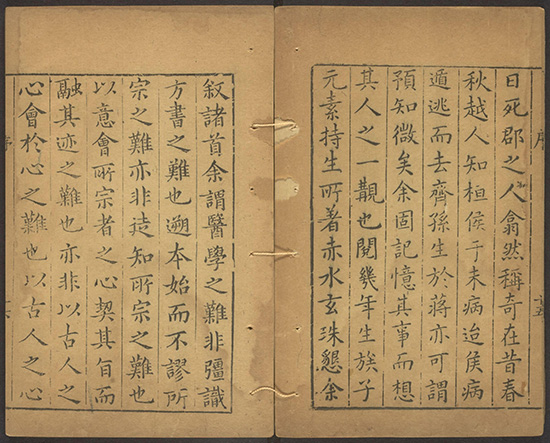 日死郡之人翕然稱奇在昔春
秋越人知桓侯于未病迨侯病
遁逃而去齊孫生於蔣亦可謂
預知微矣余固記憶其事而想
其人之一覯也閱幾年生族子
元素持生所著赤水玄珠懇余
序
敘諸首余謂醫學之難非彊識
方書之難也遡本始而不謬所
宗之難亦非造知所宗之難也
以意會所宗者之心契其旨而
融其迹之難也亦非以古人之
心會於心之難也以古人之心
序